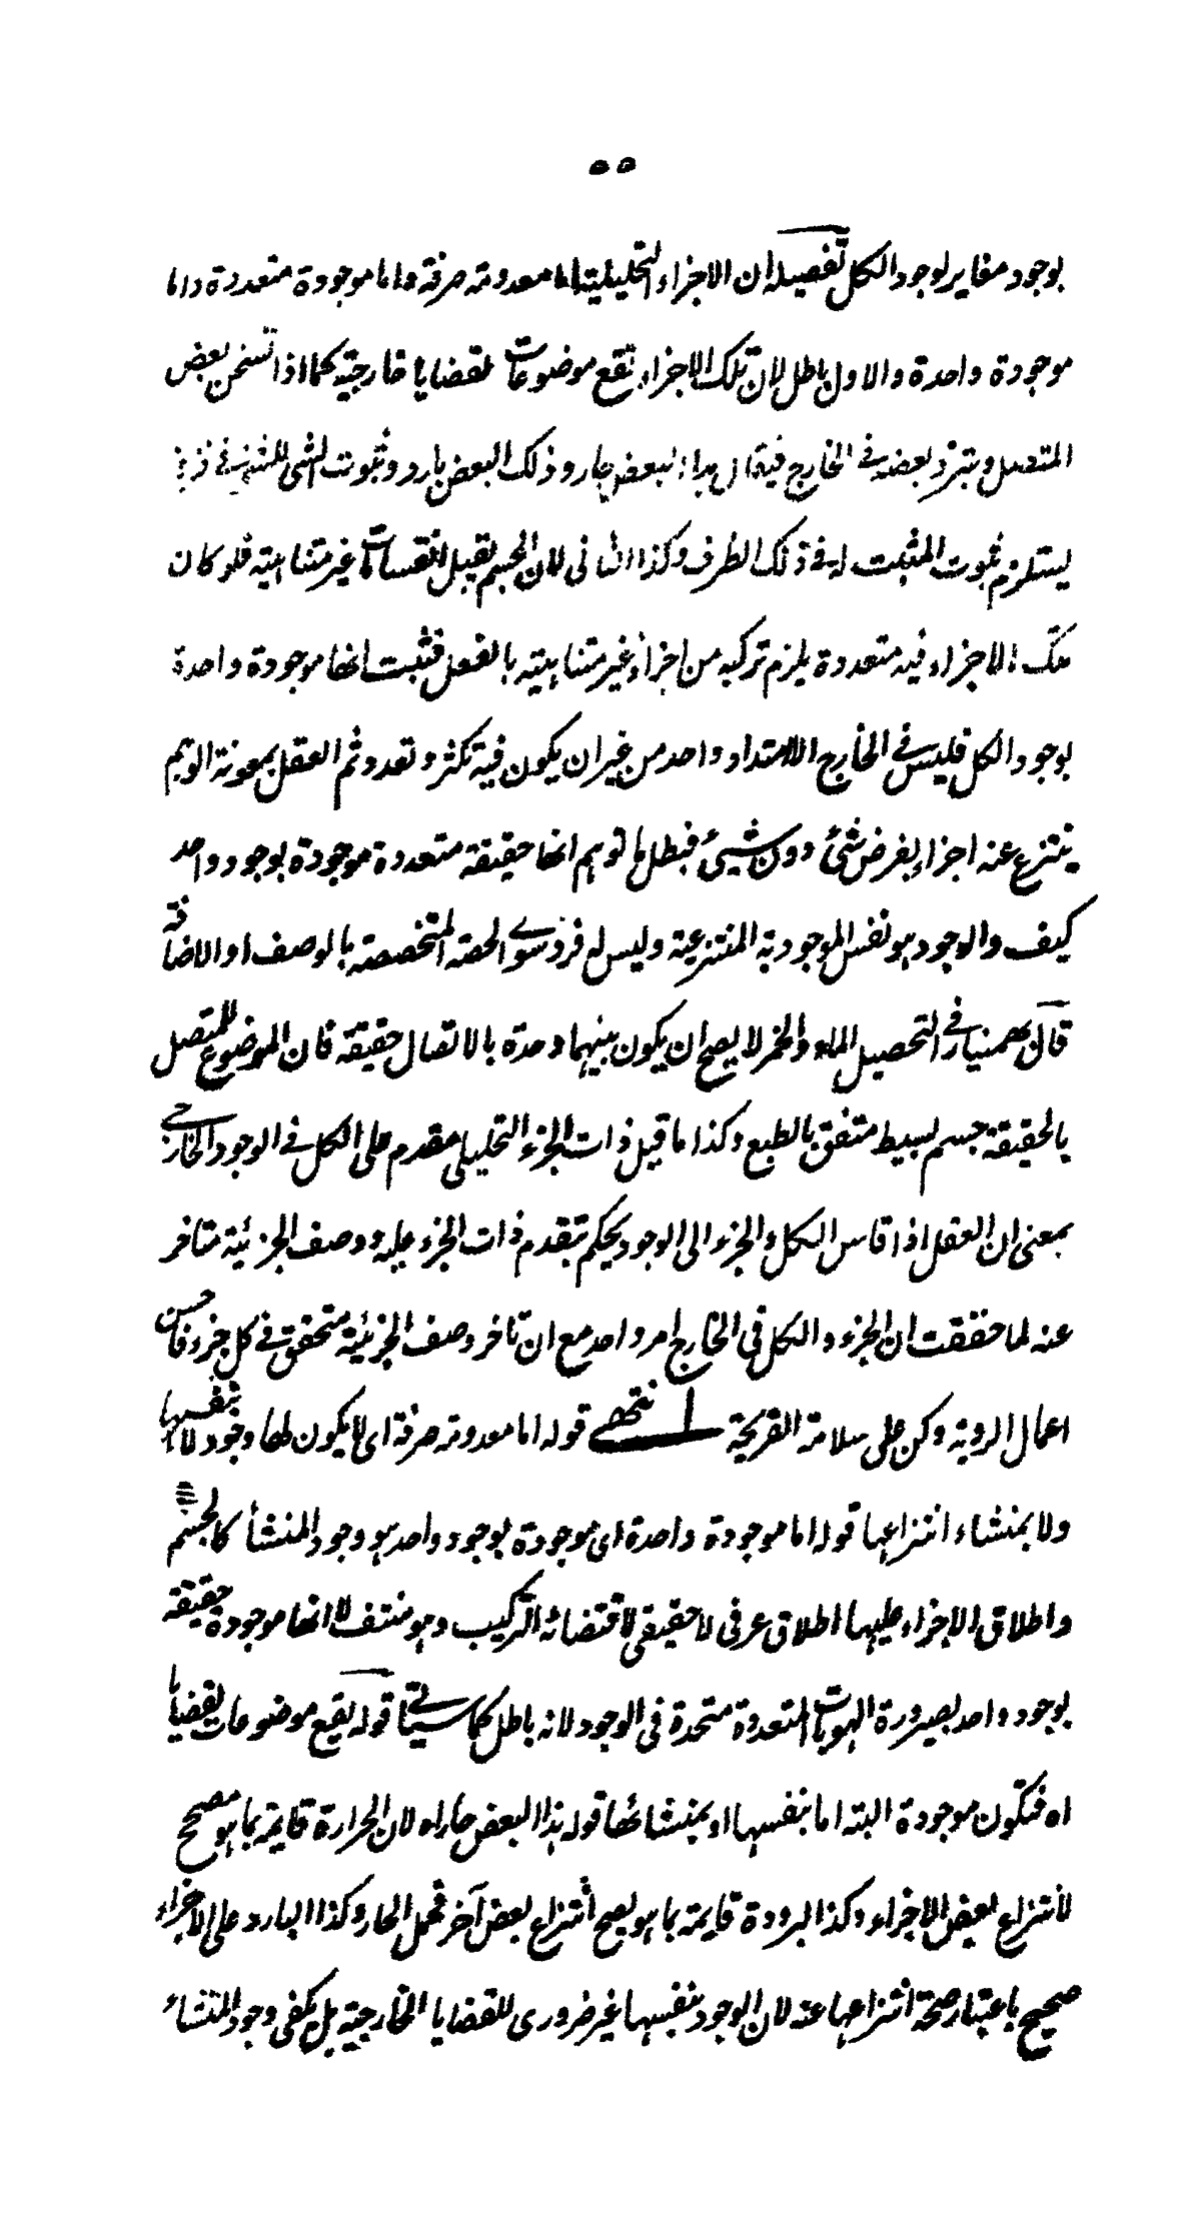 ٥٥
بوجود مغاير لوجود الكل تفصيله ان الاجزاء التحليلية اما معدومة صرفة واما موجودة متعددة واما
موجودة واحدة والاول باطل لان تلك الاجزاء تقع موضوعات لقضايا خارجية كما اذا تسخن بعض
المتصل وتبرد بعضه في الخارج فيقال هذا البعض حار وذلك البعض بارد وثبوت الشي للشي في ظرف
يستلزم ثبوت المثبت له في ذلك الظرف وكذا الثاني لان الجسم يقبل انقسامات غير متناهية فلو كان
تلك الاجزاء فيه متعددة يلزم تركبه من اجزاء غير متناهية بالفعل فثبت انها موجودة واحدة
بوجود الكل فليس في الخارج الا امتداد واحد من غير ان يكون فيه تكثر وتعدد ثم العقل بمعونة الوهم
ينتزع عنه اجزاء بفرض شئ دون شيئ فبطل ما توهم انها حقيقة متعددة موجودة بوجود واحد
كيف والوجود هو نفس الموجودية المنتزعية وليس له فرد سوى الحصة المتخصصة بالوصف او الاضافة
قال بهمنيار في التحصيل الماء والخمر لا يصح ان يكون بينهما وحدة بالاتصال حقيقة فان الموضوع للمتصل
بالحقيقة جسم بسيط متفق بالطبع وكذا ما قيل ذات الجزء التحليلي مقدم على الكل في الوجود الخارجي
بمعنى ان العقل اذا قاس الكل والجزء الى الوجود يحكم بتقدم ذات الجزء عليه ووصف الجزئية متاخر
عنه لما حققت ان الجزء والكل في الخارج امر واحد مع ان تاخر وصف الجزئية متحقق في كل جزء فاحسن
اعمال الروية وكن على سلامة القريحة انتهى قوله اما معدومة صرفة اى لا يكون لها وجود لا بنفسها
ولا بمنشاء انتزاعها قوله اما موجودة واحدة اى موجودة بوجود واحد هو وجود المنشأ كالجسم
واطلاق الاجزاء عليها اطلاق عرفى لا حقيقى لاقتضائه التركيب وهو منتف لا انها موجودة حقيقة
بوجود واحد بصيرورة الهويات المتعددة متحدة فى الوجود لانه باطل كما سياتى قوله يقع موضوعات لقضايا
اه فتكون موجودة البته اما بنفسها او بمنشائها قوله هذا البعض حار اه لان الحرارة قايمة بما هو مصحح
لانتزاع بعض الاجزاء وكذا البرودة قايمة بما هو يصح انتزاع بعض آخر فحمل الحار وكذا البارد على الاجزاء
صحيح باعتبار صحة انتزاعها عنه لان الوجود بنفسها غير ضرورى للقضايا الخارجية بل يكفى وجود المنشاء